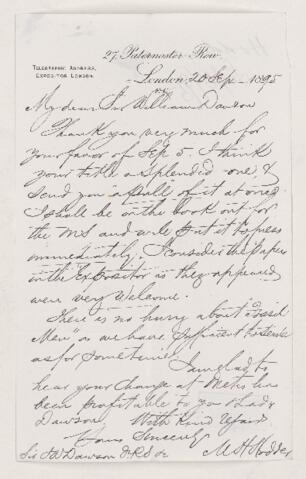 27, Paternoster Row,
TELEGRAPHIC ADDRESS,
EXPOSITOR LONDON.
London, 20 Sep 1895
My dear Sir William Dawson
Thank you very much for
your favor of Sep 5. I think
your title a splendid one, &
send you of it at once
I shall be on the look out for
the MS and will put it to press
immediately. I consider the papers
in the Expositor as they appeared
were very welcome.
There is no hurry about "Fossil
Men" as we have sufficient
as for some time.
I am glad to
hear your change at Metis has
been profitable to you & Lady
Dawson. With kind regards
Yours Sincerely
Sir JW Dawson FRS &c M H Hodder